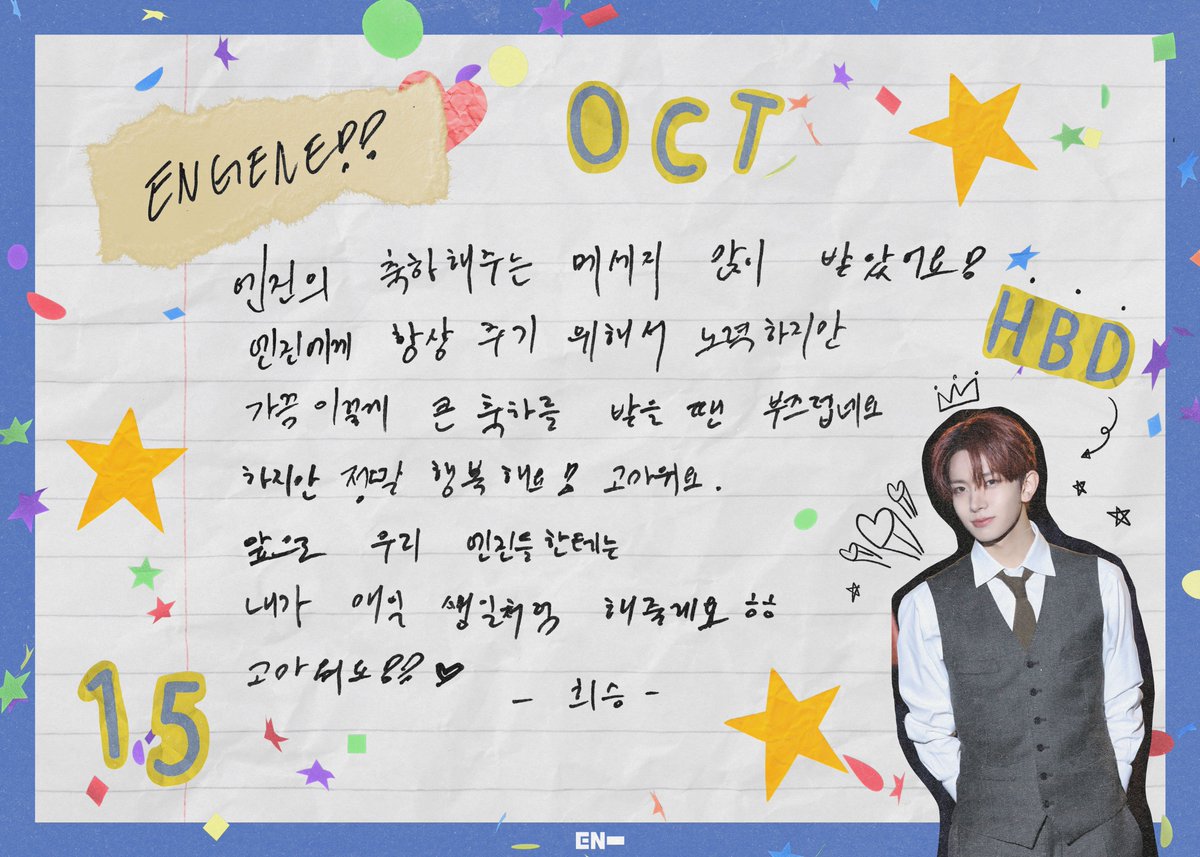 ENGENE!!
OCT
엔진의 축하해주는 메세지 많이 받았어요!
엔진에게 항상 주기 위해서 노력하지만
HBD
가끔 이렇게 큰 축하를 받을 땐 부끄럽네요
하지만 정말 행복해요! 고마워요.
앞으로 우리 엔진들한테는
내가 매일 생일처럼 해줄게요 ㅎㅎ
고마워요!!! ♥
- 희승 -
15
EN-